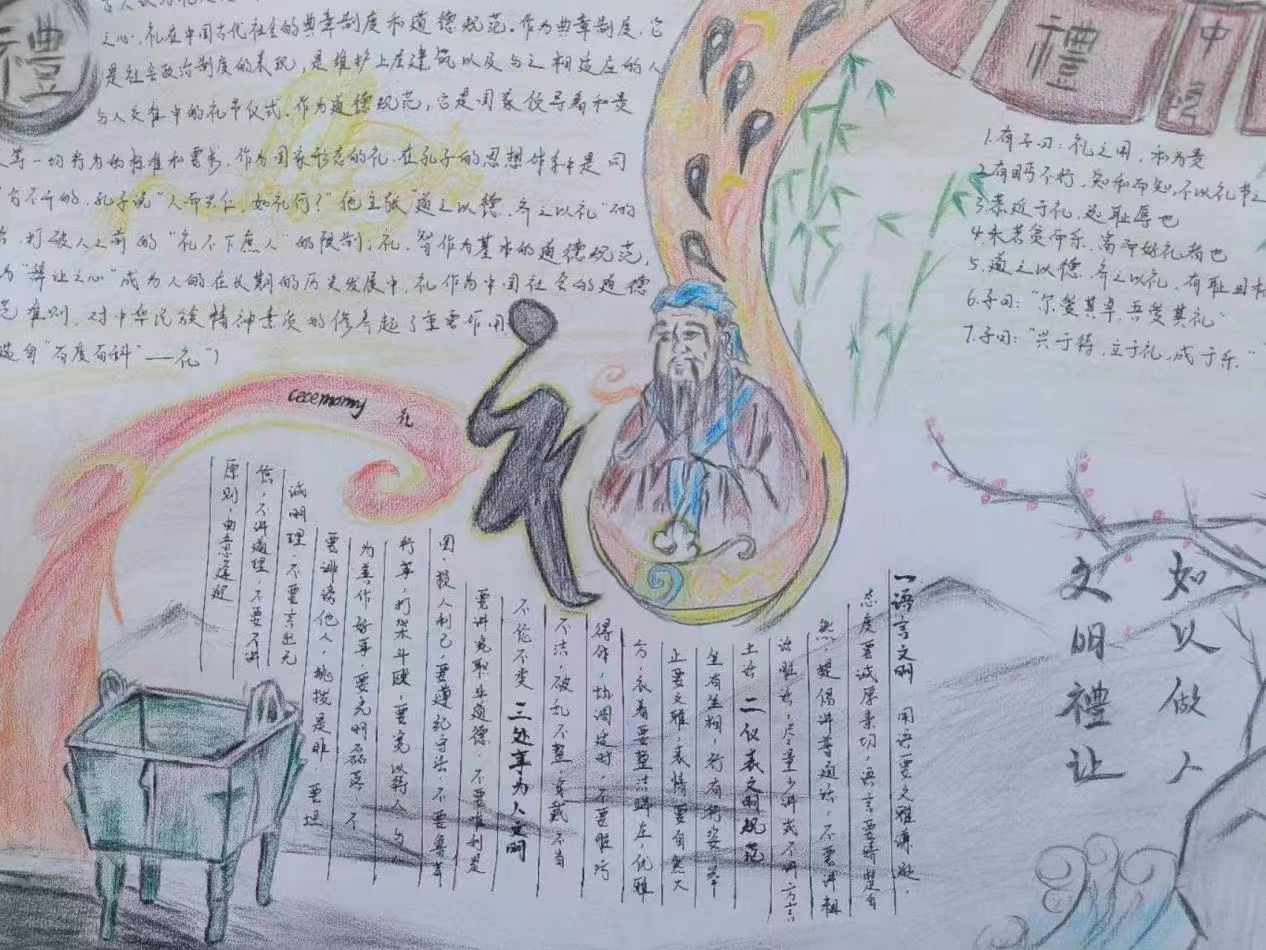 禮
之心,礼在中国古代社会的典章制度和道德规范。作为典章制度,它
是社会政治制度的表现,是维护上层建筑以及与之相适应的人
与人交往中的礼节仪式。作为道德规范,它是国家领导者和贵
等一切行为的标准和要求。作为国家形态的礼,在孔子的思想体系中是同
分不开的。孔子说“人而不仁,如礼何?”他主张“道之以德,齐之以礼”的
治,打破人之前的“礼不下庶人”的限制。礼、智作为基本的道德规范,
为“辞让之心”成为人的在长期的历史发展中,礼作为中国社会的道德
范准则,对中华民族精神素质的修养起了重要作用
选自“百度百科”——礼”)
cecemomy 礼
礼
禮
中
1.有子曰:礼之用,和为贵
2.有所不行,知和而和,不以礼节之
3.恭近于礼,远耻辱也
4.未若贫而乐,富而好礼者也
5.道之以德,齐之以礼,有耻且格
6.子曰:“尔爱其羊,吾爱其礼”
7.子曰:“兴于诗,立于礼,成于乐。”
如以做人
文明禮让
一语言文明 用语要文雅谦逊,
态度要诚厚亲切,语言要清楚自
然,提倡讲普通话,不要讲粗
话脏话,尽量少讲或不讲方言
土话 二仪表文明规范
坐有坐相,行有行姿,举
止要文雅,表情要自然大
方,衣着要整洁鲜在,优雅
得体,协调适时,不要脏污
不洁,破乱不整,穿戴不当
不伦不类 三处事为人文明
要讲究职业道德,不要唯利是
图,损人利己,要遵纪守法,不要鲁莽
行事,打架斗殴,要宽以待人,与人
为善,作好事,要光明磊落,不
要诽谤他人,挑拨是非 要坦
诚明理,不要言而无
信,不讲道理,不要不讲
原则,曲意逢迎